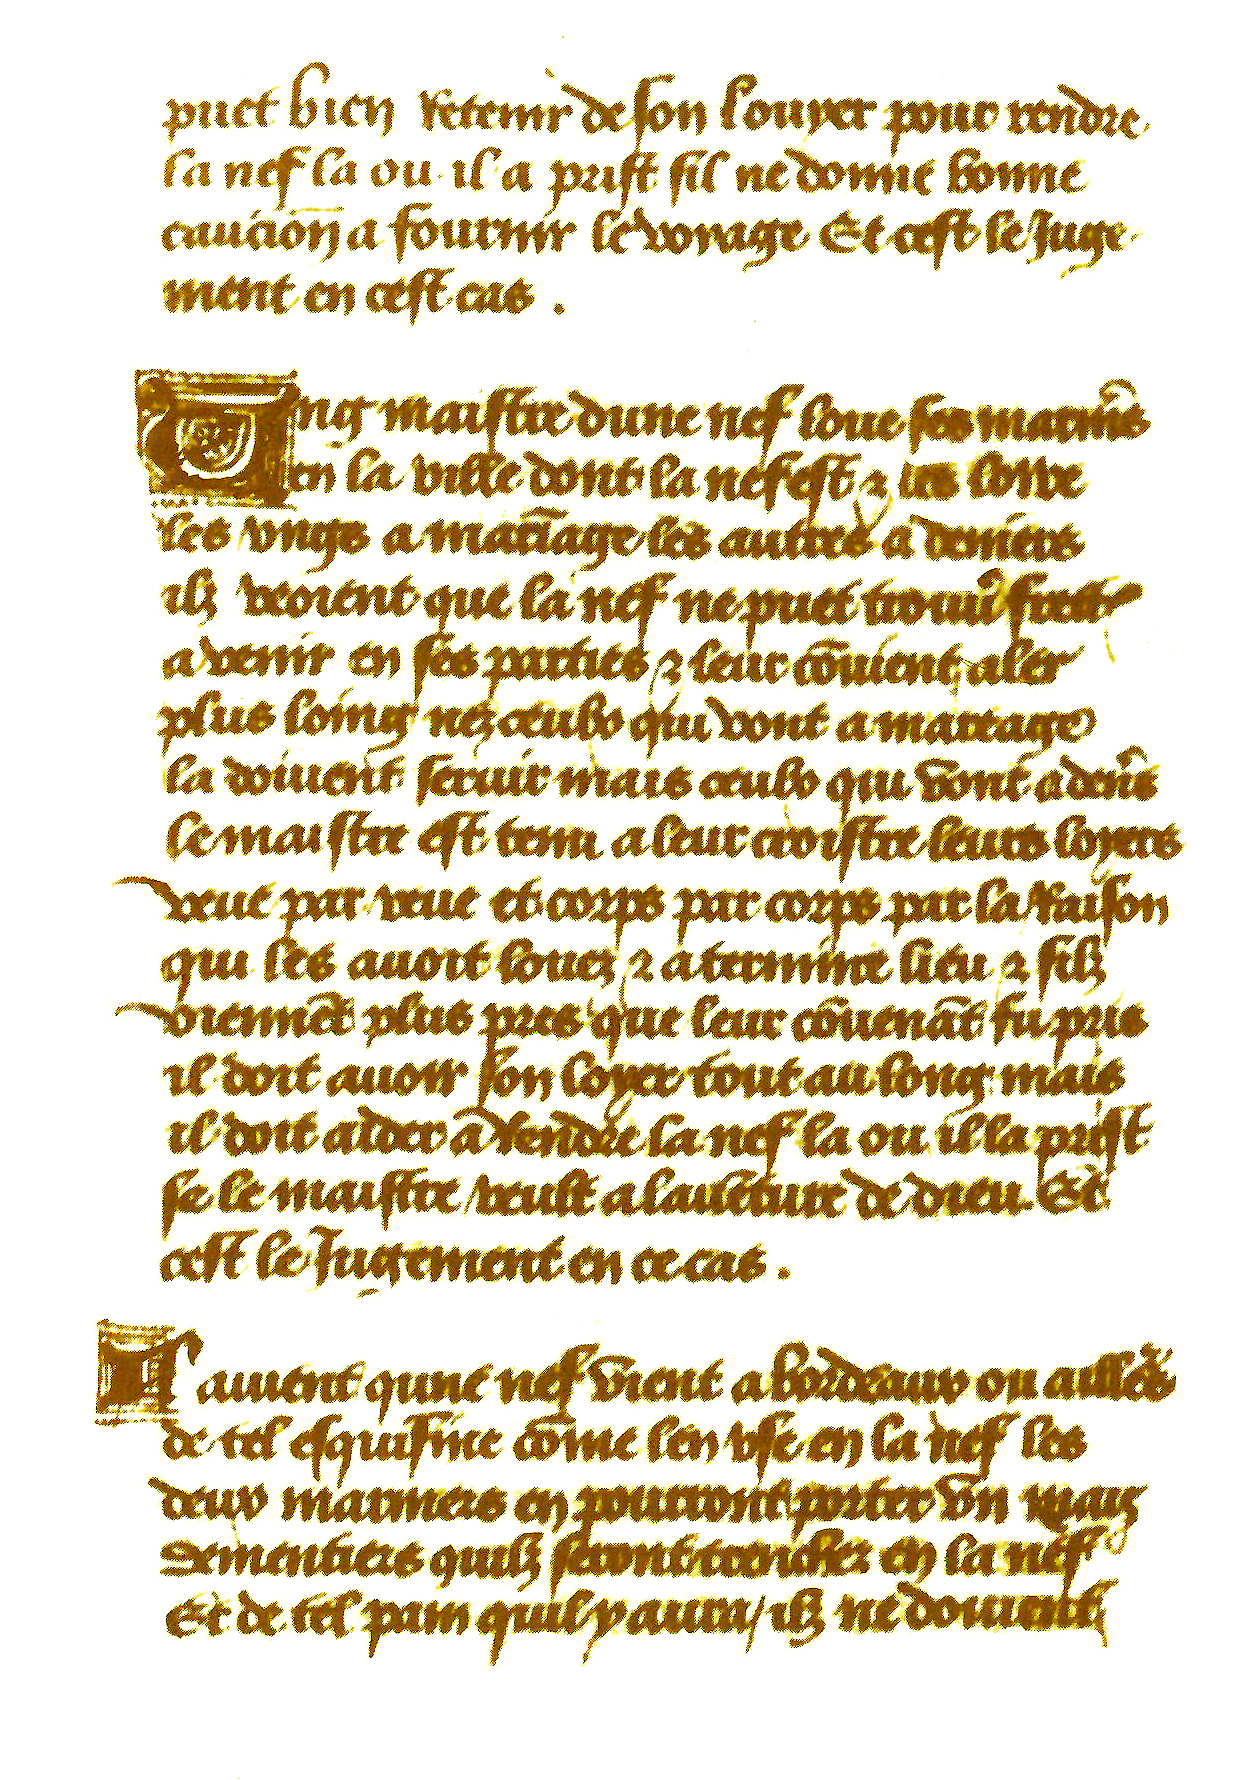 puet bien retenir de son louyer pour rendre
la nef la ou il a prist sil ne donne bonne
caucion a fournir le voyage Et cest le Juge
ment en cest cas .
Ung maistre dune nef loue ses marin̄s
en la ville dont la nef est ⁊ les loue
les ungs a mar̄iage les autres a deniers
ilz veoient que la nef ne puet trouu̾ frett
a venir en ses parties ⁊ leur cōuient aler
plus loing nez ceulx qui vont a mareage
la doiuent seruir mais ceulx qui vont a den̄s
le maistre est tenu a leur croistre leurs loyers
veue par veue et corps par corps par la raison
qui les auoit louez ⁊ a termine lieu ⁊ silz
viennēt plus pres que leur cōuenāt fu pris
il doit auoir son loyer tout au long mais
il doit aider a rendre la nef la ou il la prist
se le maistre veult a lauēture de dieu. Et
cest le Jugement en ce cas .
Il auient qune nef vient a bordeaux ou aille̾s
de tel esquisine cōme len use en la nef les
deux mariners en pourront porter un maiz
Dementiers quilz seront trenchez en la nef
Et de tel pain quil y aura / ilz ne doiuent